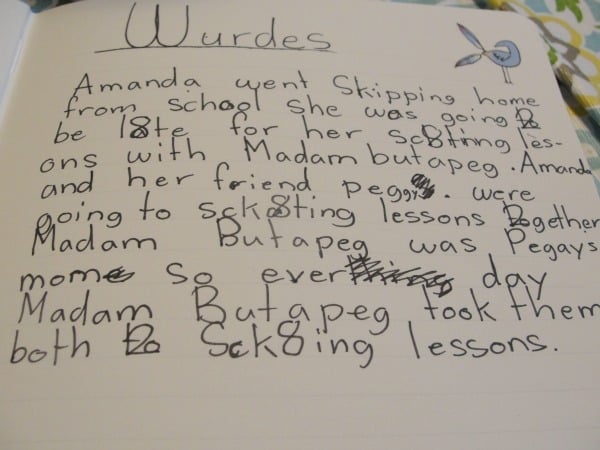 Wurdes
Amanda went Skipping home
from school she was going 2
be l8te for her sc8tinng les-
ons with Madam butapeg. Amanda
and her friend peggy. were
going to sck8ting lessons 2gether
Madam Butapeg was Pegays
mom so ever day
Madam Butapeg took them
both 2 Sck8ing lessons.